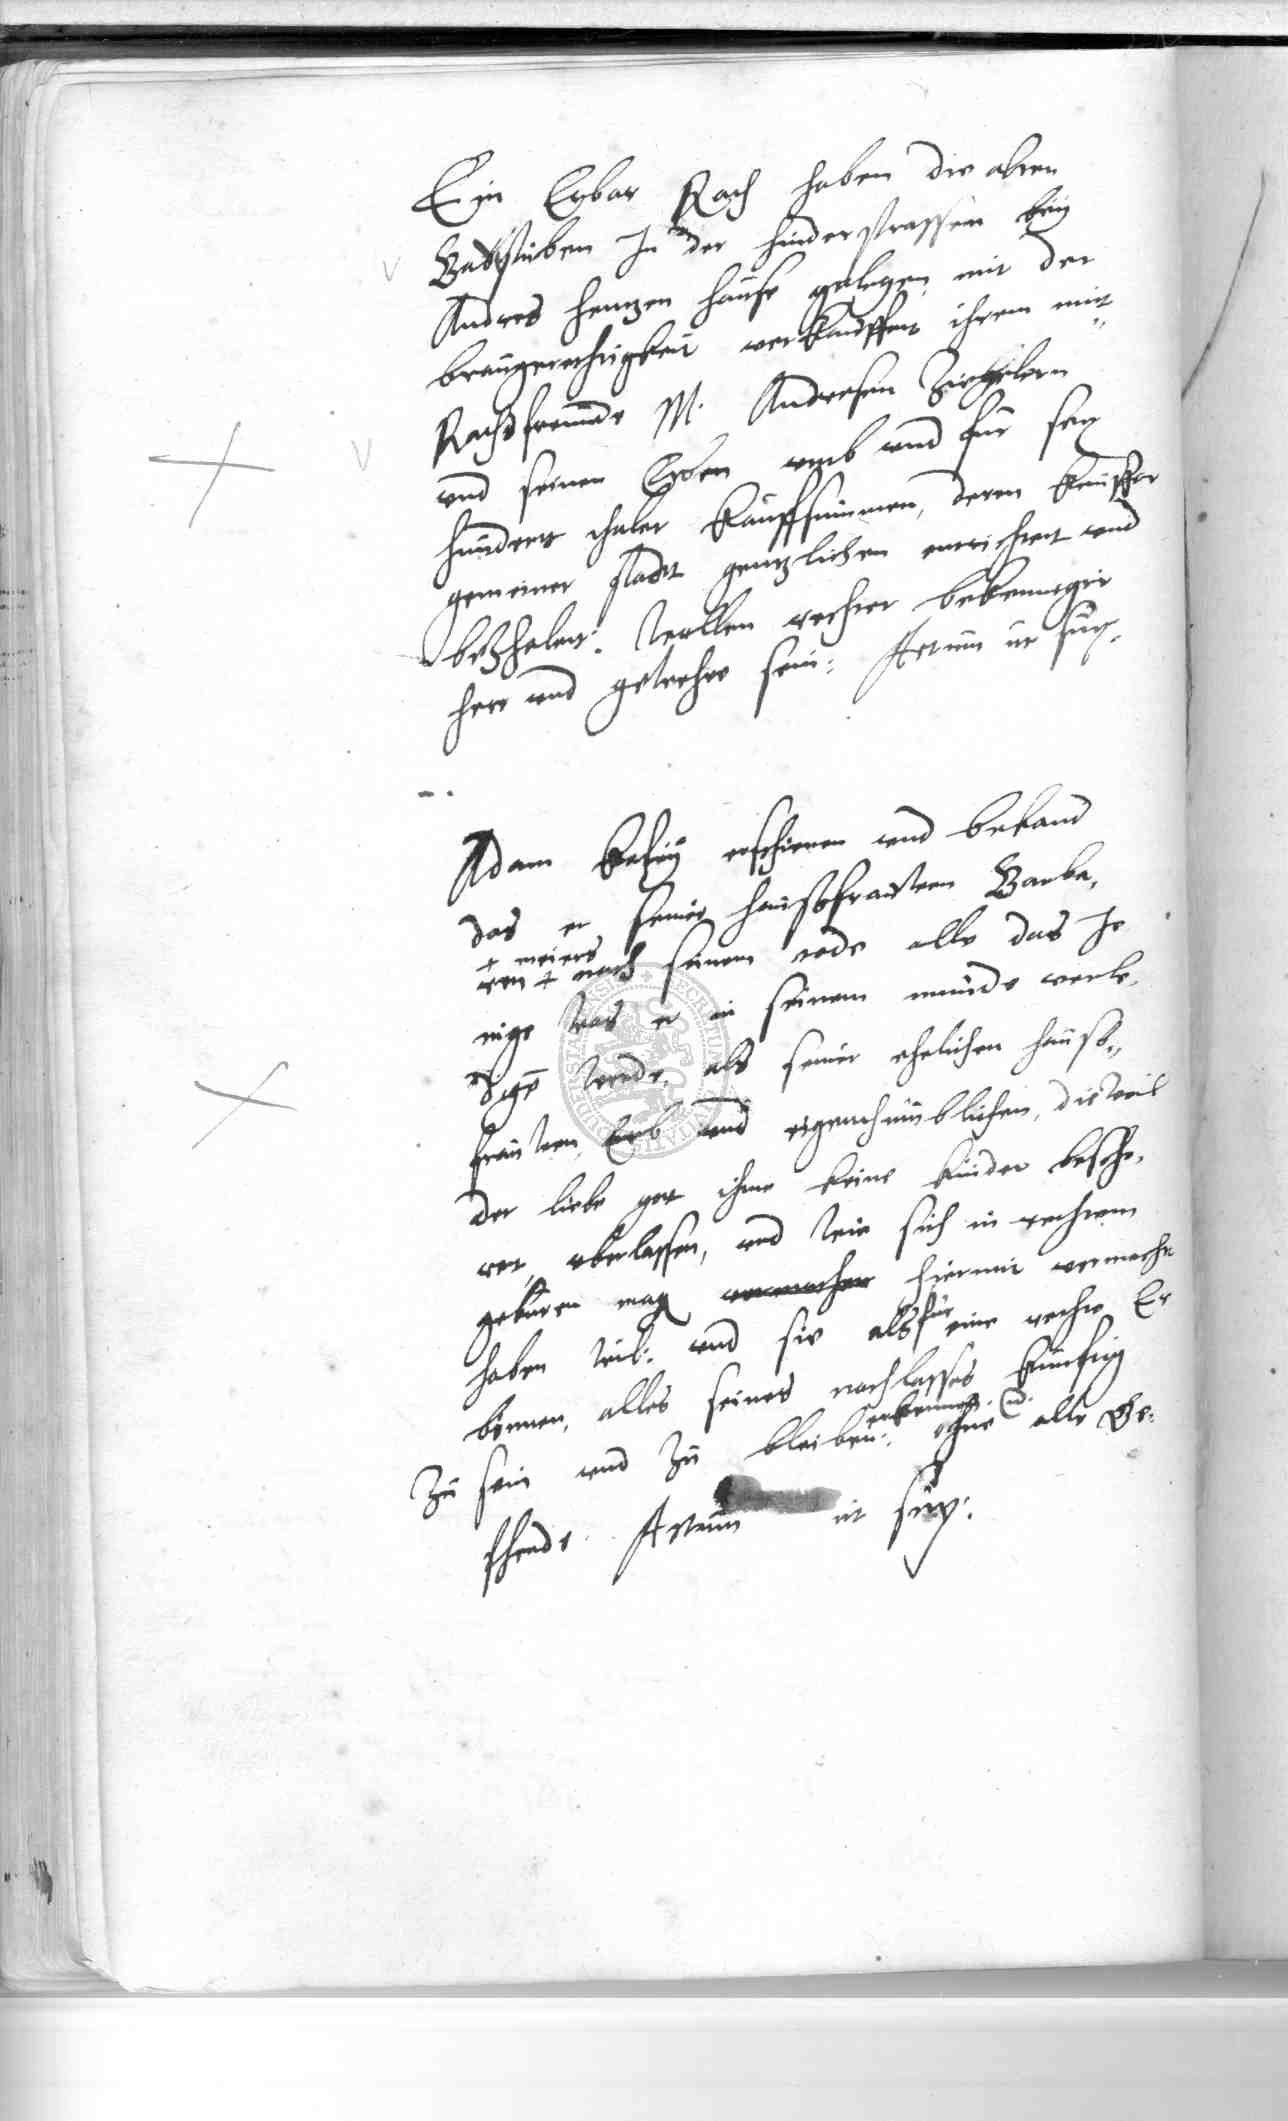 Ein Erbar Rath haben die alten
Badstuben In der hinderstrassen bey
Andres hentzen hause gelegen mit der
braugerechtigkeit verkaufft ihrem mit
Rathsfreunde M. Andresen Zieglern
und seinen Erben umb und für sex
hundert thaler Kauffsummen, deren Keuffer
gemeiner stadt gentzlichen entrichtet und
betzhalet: wollen rechter bekennegir
herr und gewehre sein: Actum ut supra.
Adam erschienen und bekand
das er seiner haussfrauwen Barba,
+ meiers
ren + nach seinem tode alle das Je
nige was er in seinem verle,
werde, als seiner ehelichen hauss,,
frauwen, Erb und eigenthumblichen, dieweil
der liebe got ihme keine kinder besche,
ret, uberlassen, und wie sich in rechtem
geburen mag vermachen hiermit vermacht
haben wil: und sie als für eine rechte Er
binnen, alles seines nachlasses künftig
zu sein und zu bleiben: erkennet. ohne alle
Actum ut supra: